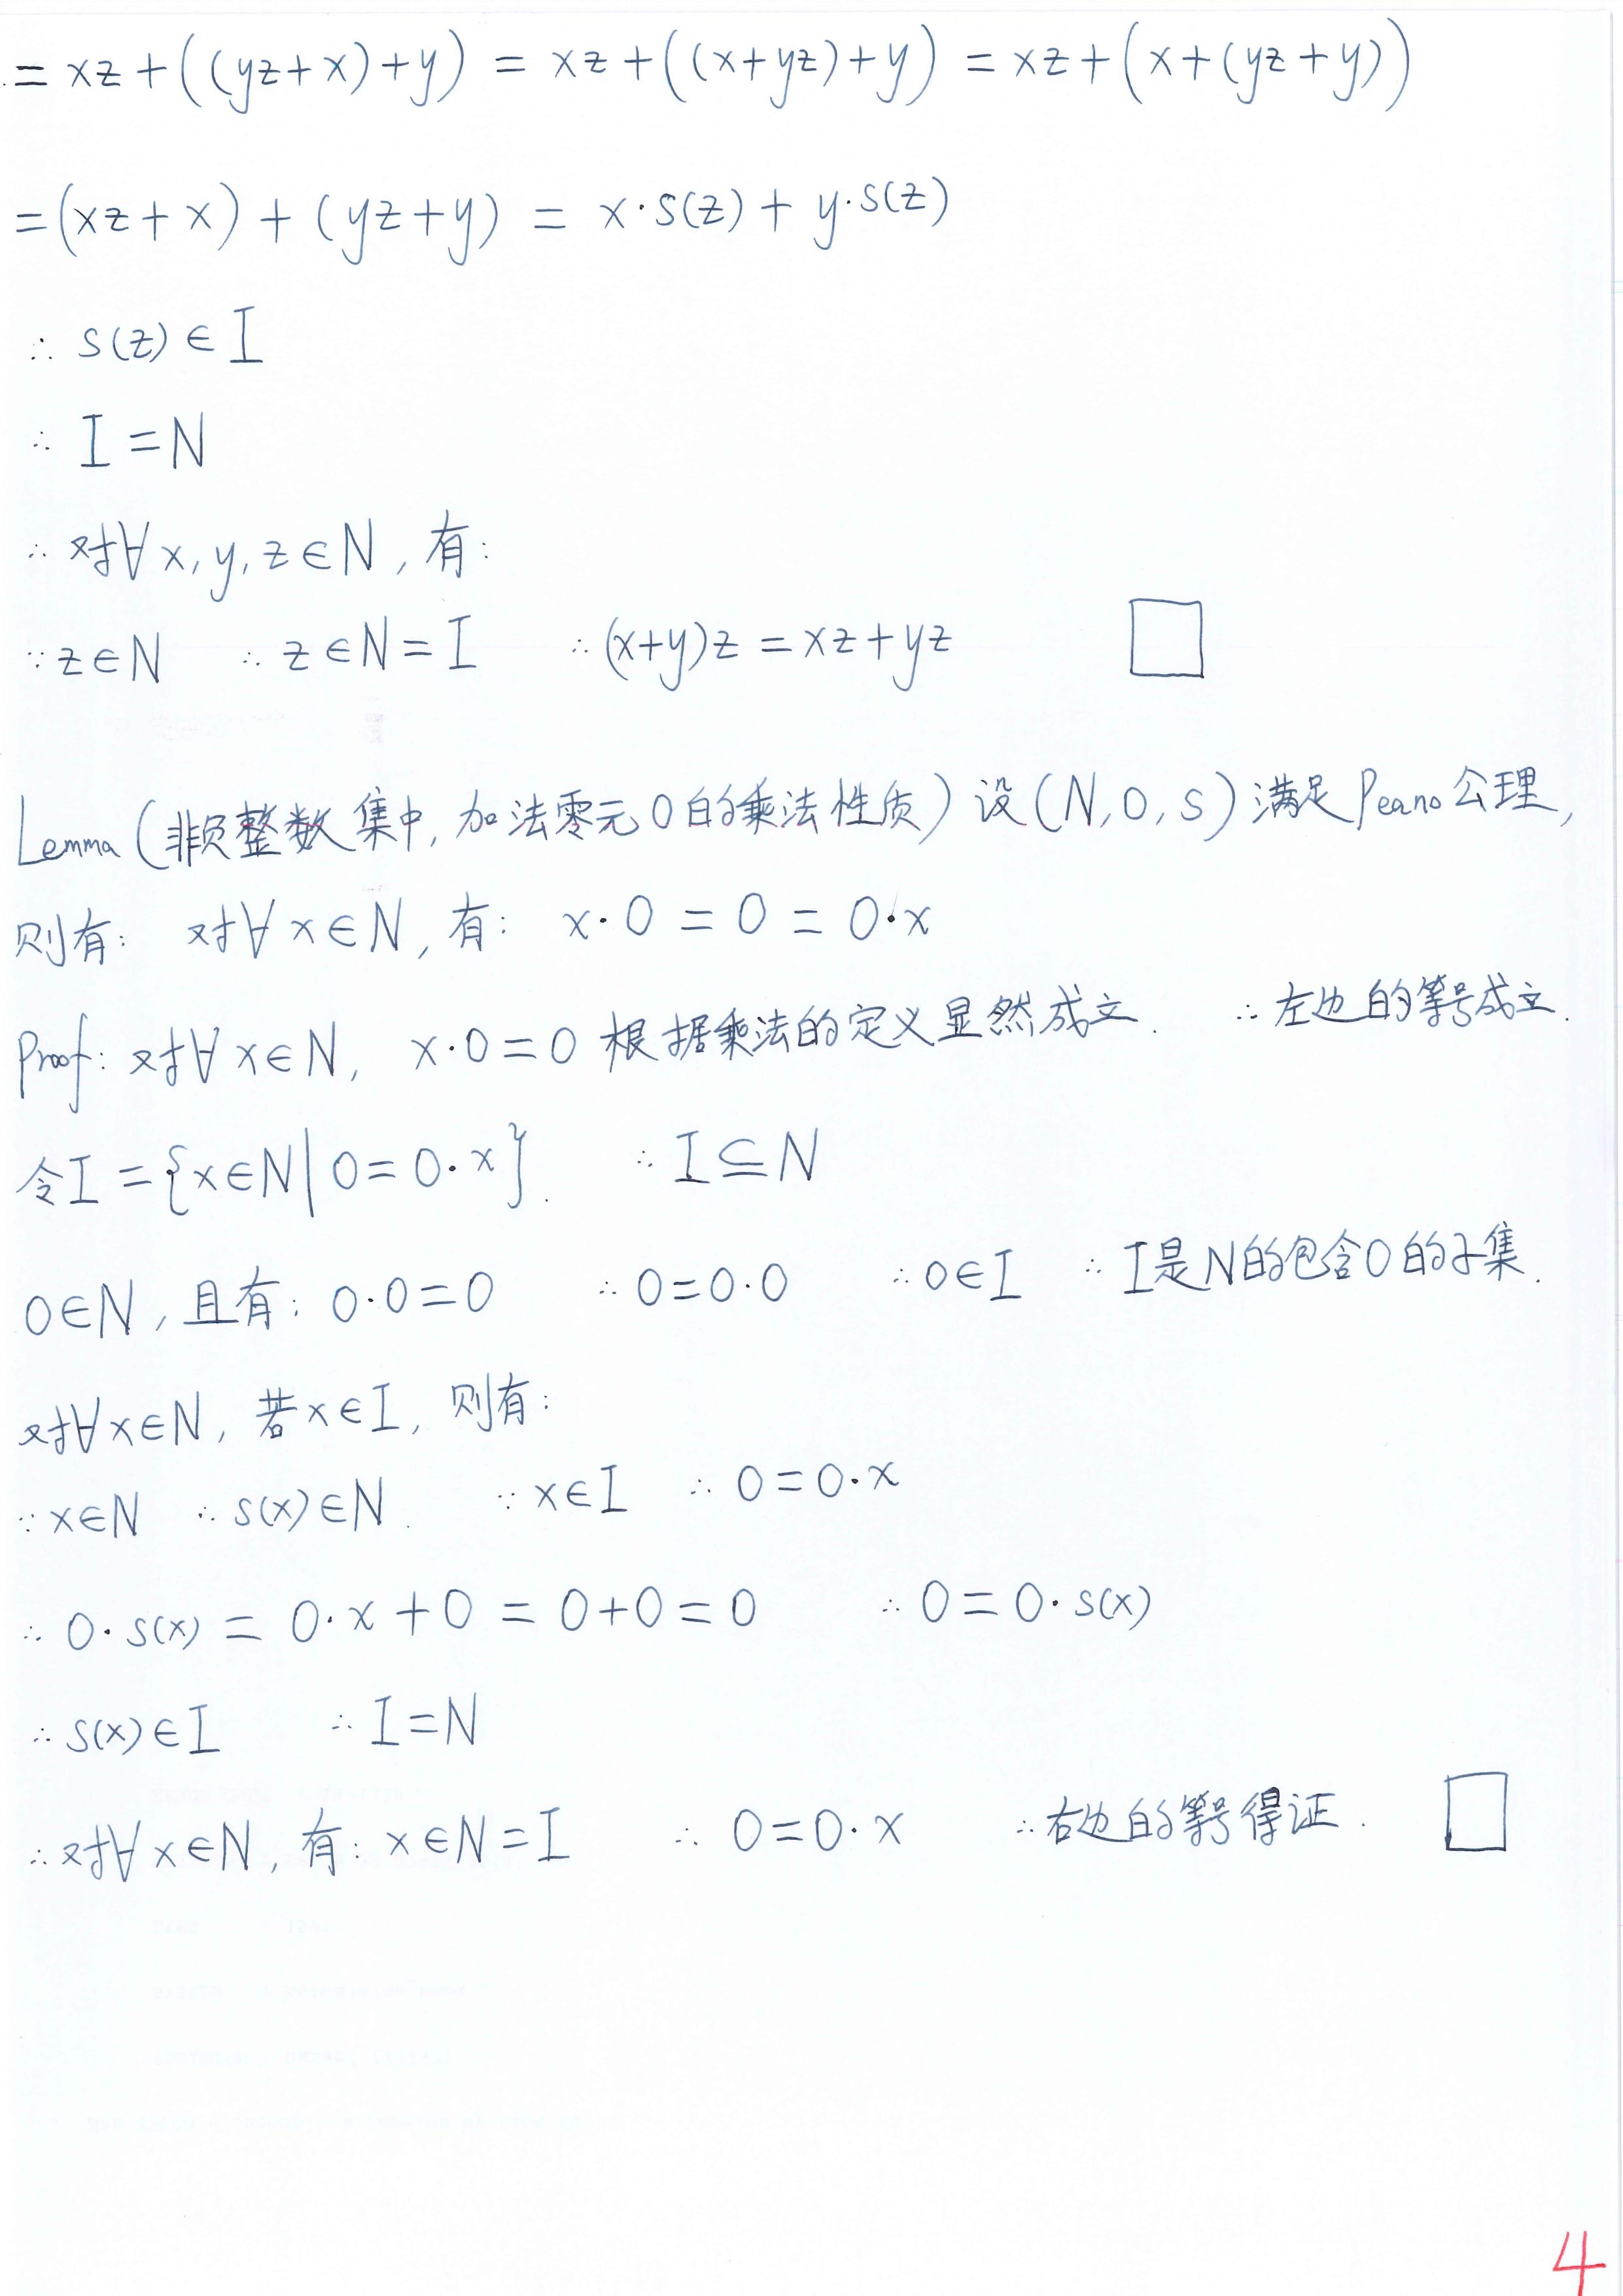 = xz + ((yz+x)+y) = xz + ((x+yz)+y) = xz + (x+(yz+y))
= (xz+x) + (yz+y) = x·s(z) + y·s(z)
∴ s(z) ∈ I
∴ I = N
∴ 对∀x, y, z ∈ N, 有:
∵ z ∈ N ∴ z ∈ N = I ∴ (x+y)z = xz + yz □
Lemma (非负整数集中, 加法零元0的乘法性质) 设(N, 0, s)满足Peano公理,
则有: 对∀x ∈ N, 有: x·0 = 0 = 0·x
Proof: 对∀x ∈ N, x·0 = 0 根据乘法的定义显然成立. ∴ 左边的等号成立.
令I = {x ∈ N | 0 = 0·x}. ∴ I ⊆ N
0 ∈ N, 且有: 0·0 = 0 ∴ 0 = 0·0 ∴ 0 ∈ I ∴ I是N的包含0的子集.
对∀x ∈ N, 若x ∈ I, 则有:
∵ x ∈ N ∴ s(x) ∈ N. ∵ x ∈ I ∴ 0 = 0·x
∴ 0·s(x) = 0·x + 0 = 0 + 0 = 0 ∴ 0 = 0·s(x)
∴ s(x) ∈ I ∴ I = N
∴ 对∀x ∈ N, 有: x ∈ N = I ∴ 0 = 0·x ∴ 右边的等号得证. □
4